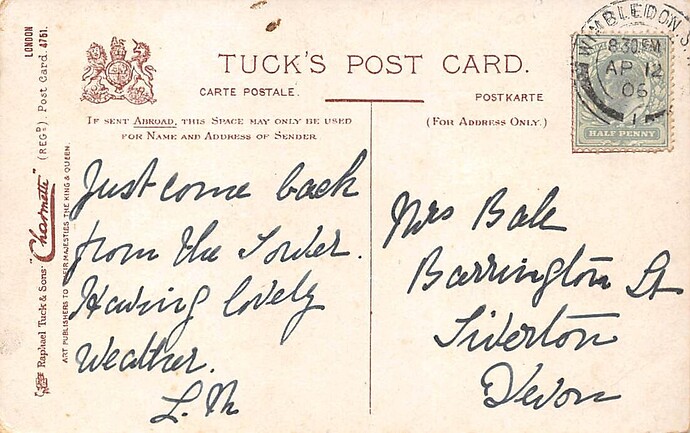 TUCK'S POST CARD.
CARTE POSTALE.
POSTKARTE
IF SENT ABROAD, THIS SPACE MAY ONLY BE USED
FOR NAME AND ADDRESS OF SENDER
(FOR ADDRESS ONLY.)
WIMBLEDON S.
8.30 PM
AP 12
06
HALF PENNY
Just come back
from the Tower.
Having lovely
Weather.
L. M
Mrs Bale
Barrington St
Tiverton
Devon
Raphael Tuck & Sons' "Charmette" (REGD.) Post Card 4751.
LONDON
ART PUBLISHERS TO THEIR MAJESTIES THE KING & QUEEN.